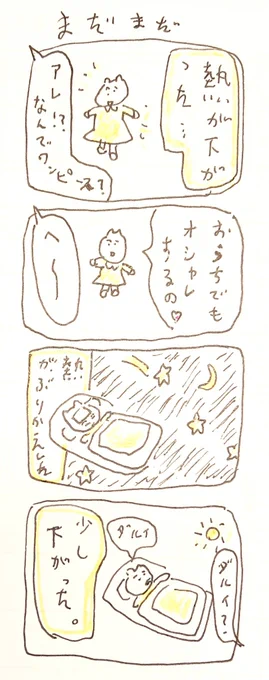 まだまだ
熱が下が
った…
アレ!?
なんでワンピース?
おうちでも
オシャレ
するの♡
へ〜
熱
がぶりかえしれ
ダルイ?…
ダルイ
少し
下がった。